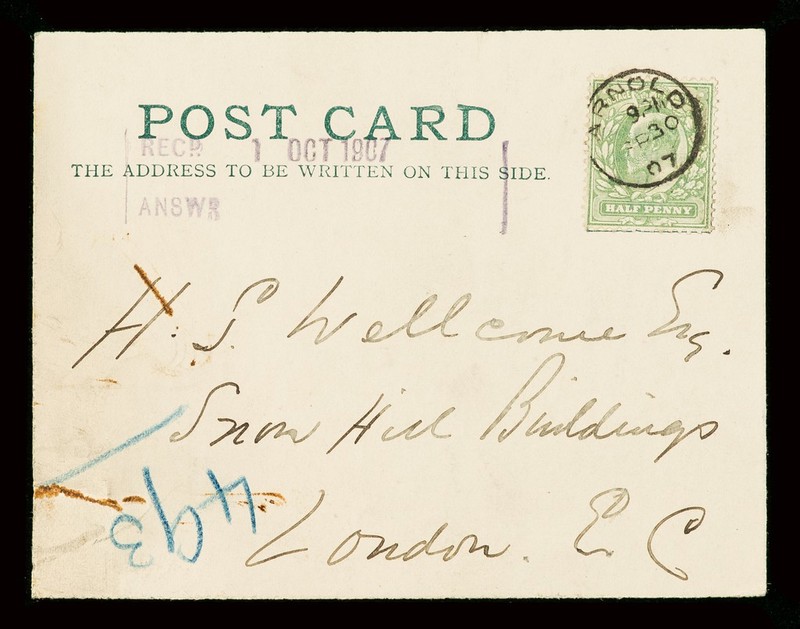 POST CARD
RECD. 1 OCT 1907
THE ADDRESS TO BE WRITTEN ON THIS SIDE.
ANSWD
ARNOLD
30
07
HALF PENNY
H. S. Wellcome Esq.
Snow Hill Buildings
London. E. C
493